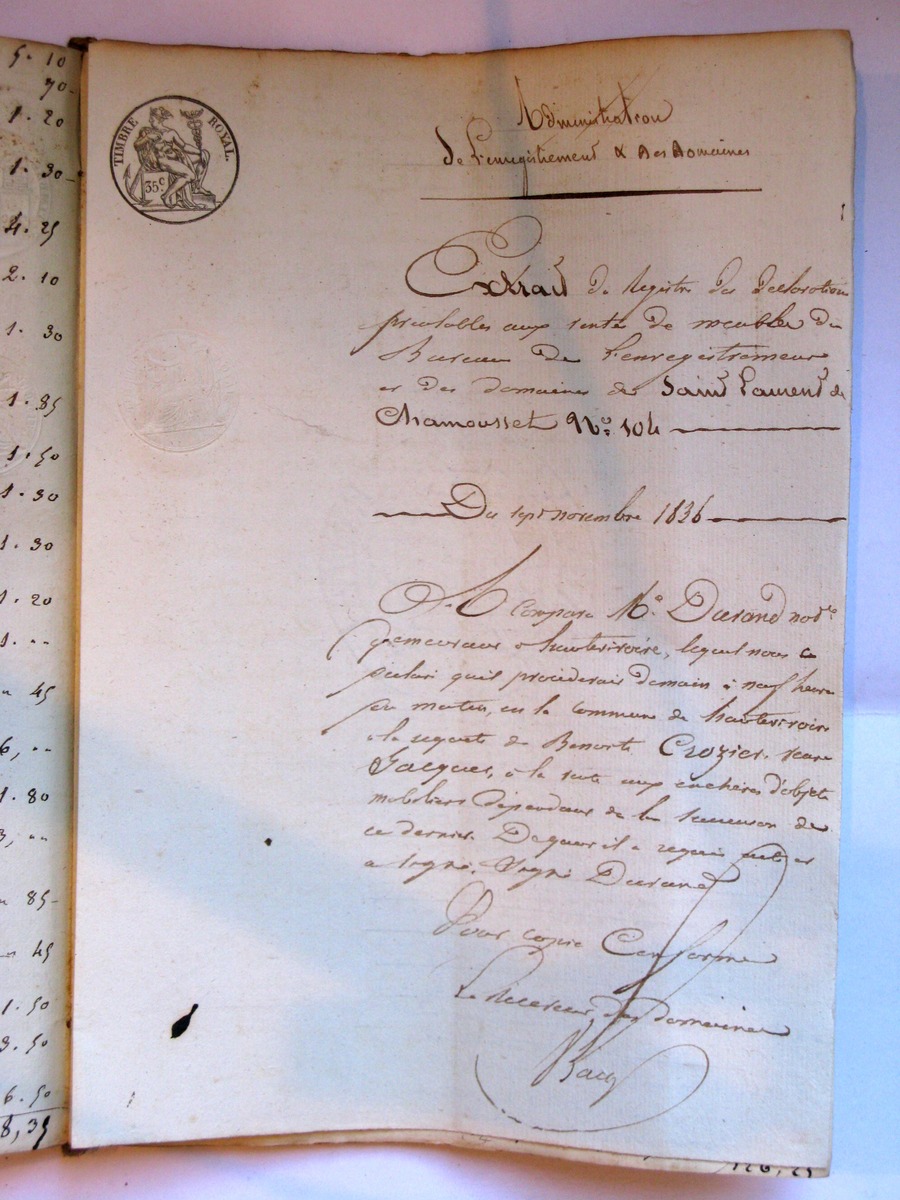 5. 10
70
1. 20
1. 30
4. 25
2. 10
1. 30
1. 85
1. 50
1. 30
1. 30
1. 20
1. "
45
6, "
1. 80
3, "
85
45
1. 50
3. 50
6. 50
8, 35
TIMBRE ROYAL.
35c
Administration
de l'enregistrement & des Domaines
Extrait du registre des declarations
préalables aux ventes de meubles du
Bureau de l'enregistrement
et des domaines de Saint Laurent de
Chamousset N.o 104
Du sept novembre 1836
A Comparu M.e Durand not.re
demeurant a hauterivoire, lequel nous a
déclaré qu'il procéderait demain à neuf heures
du matin, en la commune de hauterivoire
a la requete de Benoite Crozier, veuve
Jacques, à la vente aux enchères d'objets
mobiliers dépendant de la succession de
ce dernier. De quoi il a requis acte et
a signé. Signé Durand
Pour copie Conforme
Le Receveur des domaines
126, 25